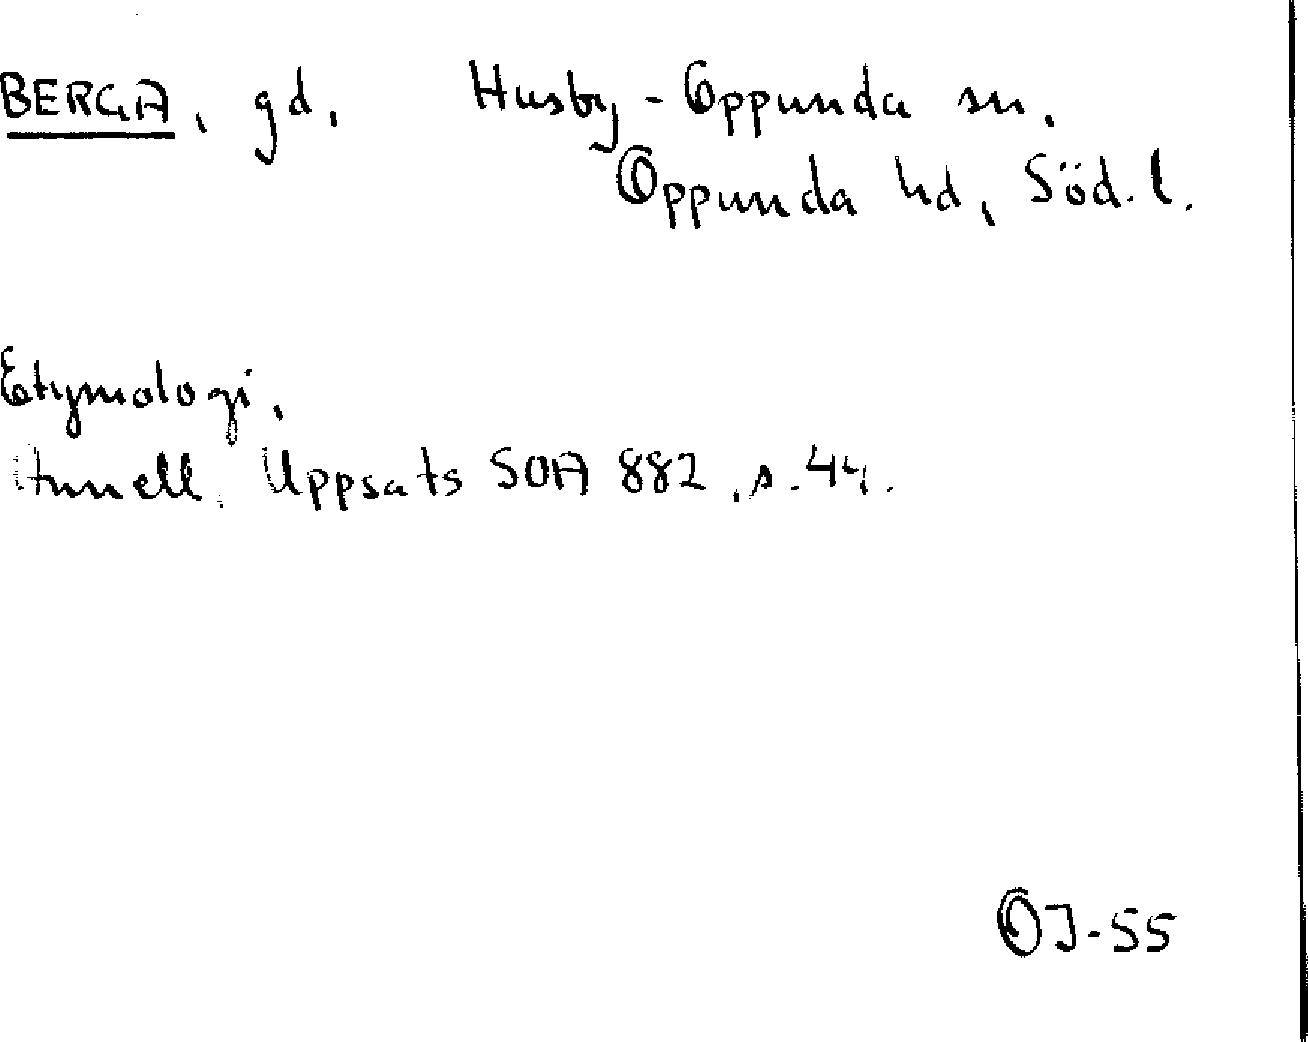 BERGA, gd, Husby-Oppunda sn.
Oppunda hd, Söd. l.
Etymologi,
Uppsats SOA 882, s. 44.
OJ-55